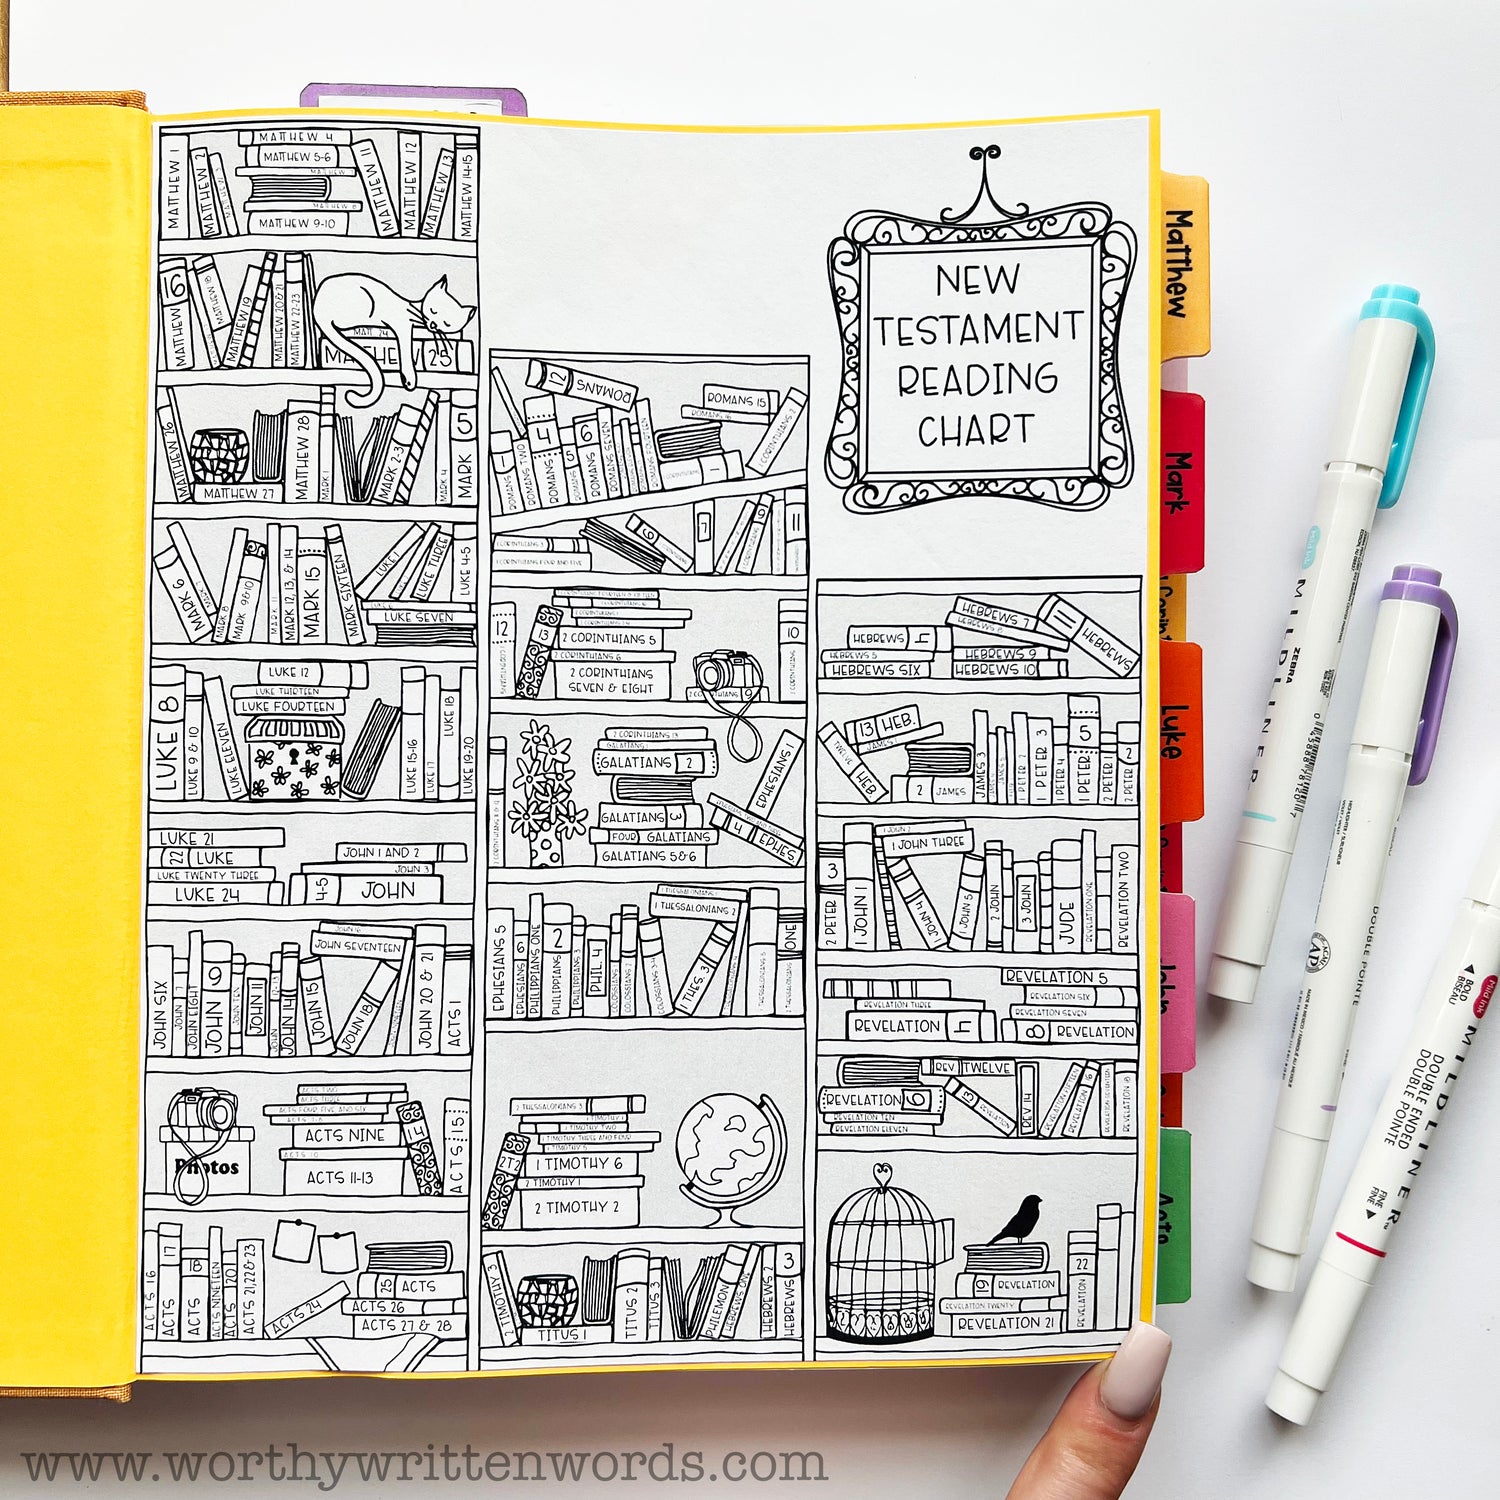 NEW
TESTAMENT
READING
CHART
MATTHEW 1
MATTHEW 2
MATTHEW 3
MATTHEW 4
MATTHEW 5-6
MATTHEW
MATTHEW 8
MATTHEW 9-10
MATTHEW 11
MATTHEW 12
MATTHEW 13
MATTHEW 14-15
16 MATTHEW
MATTHEW 18
MATTHEW 19
MATTHEW 20 & 21
MATTHEW 22-23
MATT. 24
MATTHEW 25
MATTHEW 26
MATTHEW 27
MATTHEW 28
MARK 1
MARK 2-3
MARK 4
MARK 5
MARK 6
MARK 7
MARK 8
MARK 9 & 10
MARK 11
MARK 12, 13, & 14
MARK 15
MARK SIXTEEN
LUKE 1
LUKE THREE
LUKE 4-5
LUKE 6
LUKE SEVEN
LUKE 8
LUKE 9 & 10
LUKE ELEVEN
LUKE 12
LUKE THIRTEEN
LUKE FOURTEEN
LUKE 15-16
LUKE 17
LUKE 18
LUKE 19-20
LUKE 21
22 LUKE
LUKE TWENTY THREE
LUKE 24
JOHN 1 AND 2
JOHN 3
4-5 JOHN
JOHN SIX
JOHN 7
JOHN EIGHT
JOHN 9
JOHN TEN
JOHN 11
JOHN
JOHN 14
JOHN 15
JOHN 16
JOHN SEVENTEEN
JOHN 18
JOHN 20 & 21
ACTS 1
Photos
ACTS TWO
ACTS THREE
ACTS FOUR FIVE AND SIX
ACTS 7-8
ACTS NINE
ACTS 10
ACTS 11-13
14
ACTS 15
ACTS 16
ACTS 17
ACTS 18
ACTS NINETEEN
ACTS 20
ACTS 21, 22 & 23
ACTS 24
25 ACTS
ACTS 26
ACTS 27 & 28
12 ROMANS
ROMANS 1
ROMANS TWO
ROMANS 4
ROMANS 5
ROMANS 6
ROMANS SEVEN
ROMANS 15
ROMANS 16
CORINTHIANS 1
1 CORINTHIANS 2
1 CORINTHIANS 3
1 CORINTHIANS FOUR AND FIVE
6
7
9
11
12
13
2 CORINTHIANS 5
2 CORINTHIANS 6
2 CORINTHIANS
SEVEN & EIGHT
2 CORINTHIANS 9
10
2 CORINTHIANS 13
GALATIANS 1
GALATIANS 2
GALATIANS 3
FOUR GALATIANS
GALATIANS 5 & 6
EPHESIANS 1
4 EPHES
EPHESIANS 5
EPHESIANS 6
PHILIPPIANS ONE
PHILIPPIANS 2
PHILIPPIANS 3
PHIL. 4
COLOSSIANS
COLOSSIANS 2
COLOSSIANS 3-4
1 THESSALONIANS 1
1 THESSALONIANS 2
1 THES. 3
ONE
2 THESSALONIANS 3
1 TIMOTHY 1
1 TIMOTHY TWO
1 TIMOTHY THREE AND FOUR
1 TIMOTHY 5
1 TIMOTHY 6
2 TIMOTHY 1
2 TIMOTHY 2
2 TIMOTHY 3
TITUS 1
TITUS 2
TITUS 3
PHILEMON
HEBREWS ONE
HEBREWS 2
HEBREWS 3
HEBREWS 4
HEBREWS 5
HEBREWS SIX
HEBREWS 7
HEBREWS 8
HEBREWS 9
HEBREWS 10
11 HEBREWS
TWELVE HEB
13 HEB.
JAMES 1
2 JAMES
JAMES 3
1 PETER 2
1 PETER 3
1 PETER 4
1 PETER 5
2 PETER 1
2 PETER 2
2 PETER 3
1 JOHN 1
1 JOHN 2
1 JOHN THREE
1 JOHN 4
1 JOHN 5
2 JOHN
3 JOHN
JUDE
REVELATION ONE
REVELATION TWO
REVELATION THREE
REVELATION 4
REVELATION 5
REVELATION SIX
REVELATION SEVEN
8 REVELATION
REVELATION 9
REVELATION TEN
REVELATION ELEVEN
REV. TWELVE
13 REVELATION
REV 14
REVELATION FIFTEEN
REVELATION 16
REVELATION SEVENTEEN
REVELATION 18
19 REVELATION
REVELATION TWENTY
REVELATION 21
22 REVELATION
Matthew
Mark
Luke
John
Acts
Mild ink MILDLINER
ZEBRA
DOUBLE POINTE
Mild ink MILDLINER
DOUBLE ENDED
DOUBLE POINTE
BOLD
BISEAU
FINE
FINE
www.worthywrittenwords.com